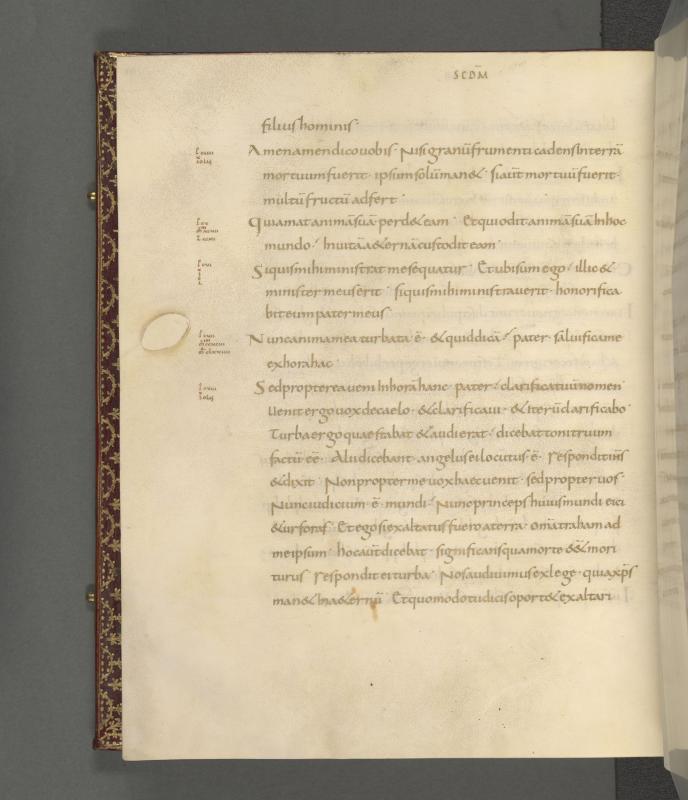 SCDM̄
filius hominis·
Amen amen dico uobis· Nisi granū frumenti cadens In terrā
mortuum fuerit· ipsum solū man&· si aūt mortuū fuerit·
multū fructū adfert·
Qui amat animā suā perd& eam· Et qui odit animā suā In hoc
mundo· In uitā a&ernā custodit eam·
Si quis mihi ministrat me sequatur· Et ubi sum ego· illic &
minister meus erit· si quis mihi ministrauerit· honorifica
bit eum pater meus·
Nunc anima mea turbata ē· & quid dicā· pater· saluifica me
ex hora hac·
Sed propterea ueni In horā hanc· pater· clarifica tuū nomen·
Uenit ergo uox de caelo· & clarificaui· & Iterū clarificabo·
Turba ergo quae stabat & audierat· dicebat tonitruum
factū eē· Alii dicebant· angelus ei locutus ē· respondit ih̄s
& dixit· Non propter me uox haec uenit· sed propter uos·
Nunc iudicium ē mundi· Nunc princeps huius mundi eici
&ur foras· Et ego si exaltatus fuero a terra· om̄a traham ad
me ipsum· hoc aūt dicebat· significans qua morte ēē& mori
turus· respondit ei turba· Nos audiuimus ex lege· quia xp̄s
man& In a&ernū· Et quomodo tu dicis oport& exaltari